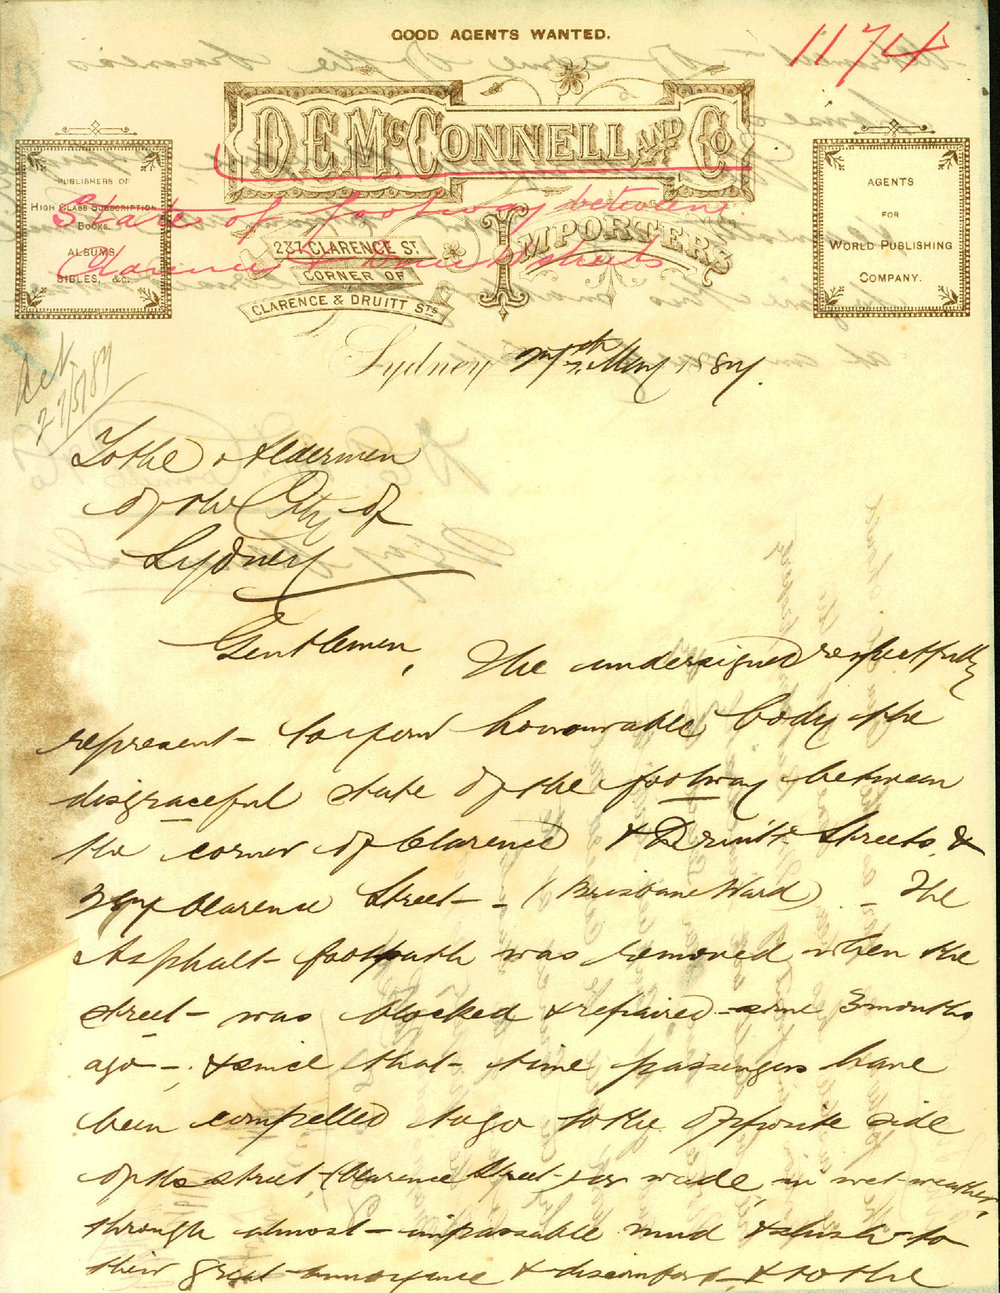 GOOD AGENTS WANTED.
1174
D.E. McCONNELL AND Co
IMPORTERS
PUBLISHERS OF
HIGH CLASS SUBSCRIPTION
BOOKS.
ALBUMS,
BIBLES, &c.
237 CLARENCE ST.
CORNER OF
CLARENCE & DRUITT STS
AGENTS
FOR
WORLD PUBLISHING
COMPANY.
State of footway between
Clarence & Druitt Streets
Sydney May 188
27/5/87
To the Aldermen
of the City of
Sydney
Gentlemen, The undersigned respectfully
represent – to your honourable body the
disgraceful state of the footway between
the corner of Clarence & Druitt Streets, &
Clarence Street – (Brisbane Ward) – The
Asphalt – footpath was removed when the
street – was blocked & repaired – some 3 months
ago –, & since that – time passengers have
been compelled to go to the opposite side
of the street, (Clarence Street – or wade, in wet weather,
through almost – impassable mud & slush – to
their great annoyance & discomfort –, & to the